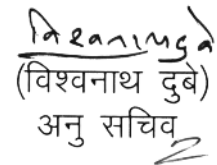 (विश्वनाथ दुबे)
अनु सचिव